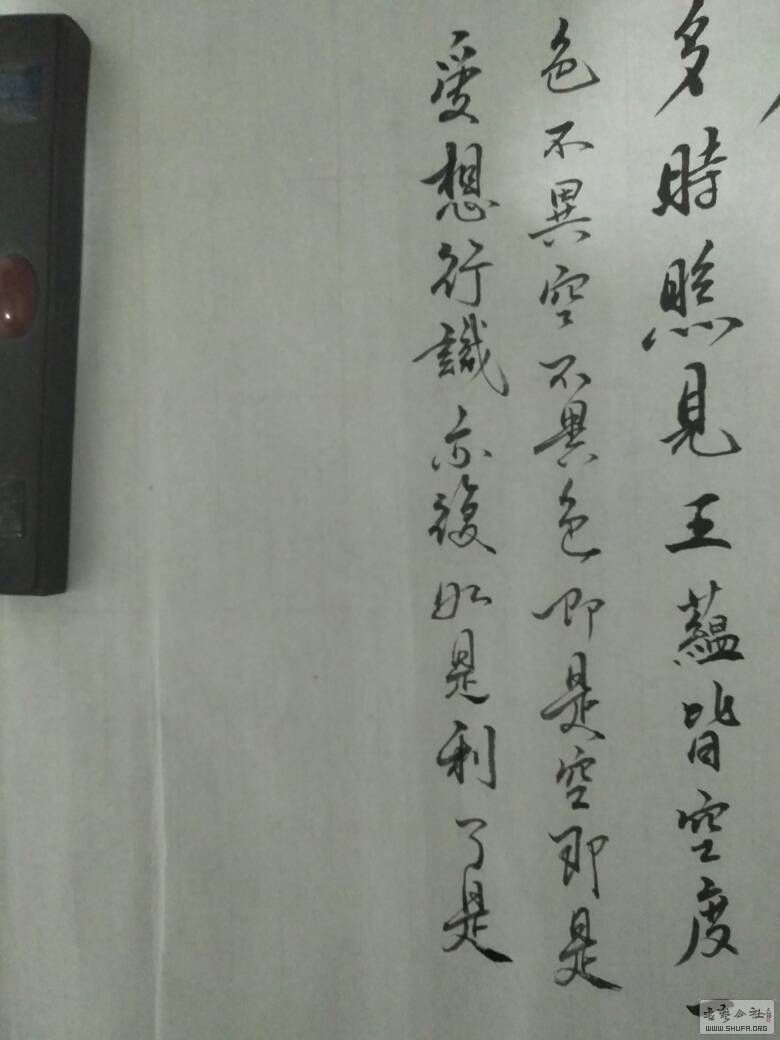 多時照見五蘊皆空度一
色不異空不異色即是空即是
受想行識亦復如是利子是
書法公社
WWW.SHUFA.ORG